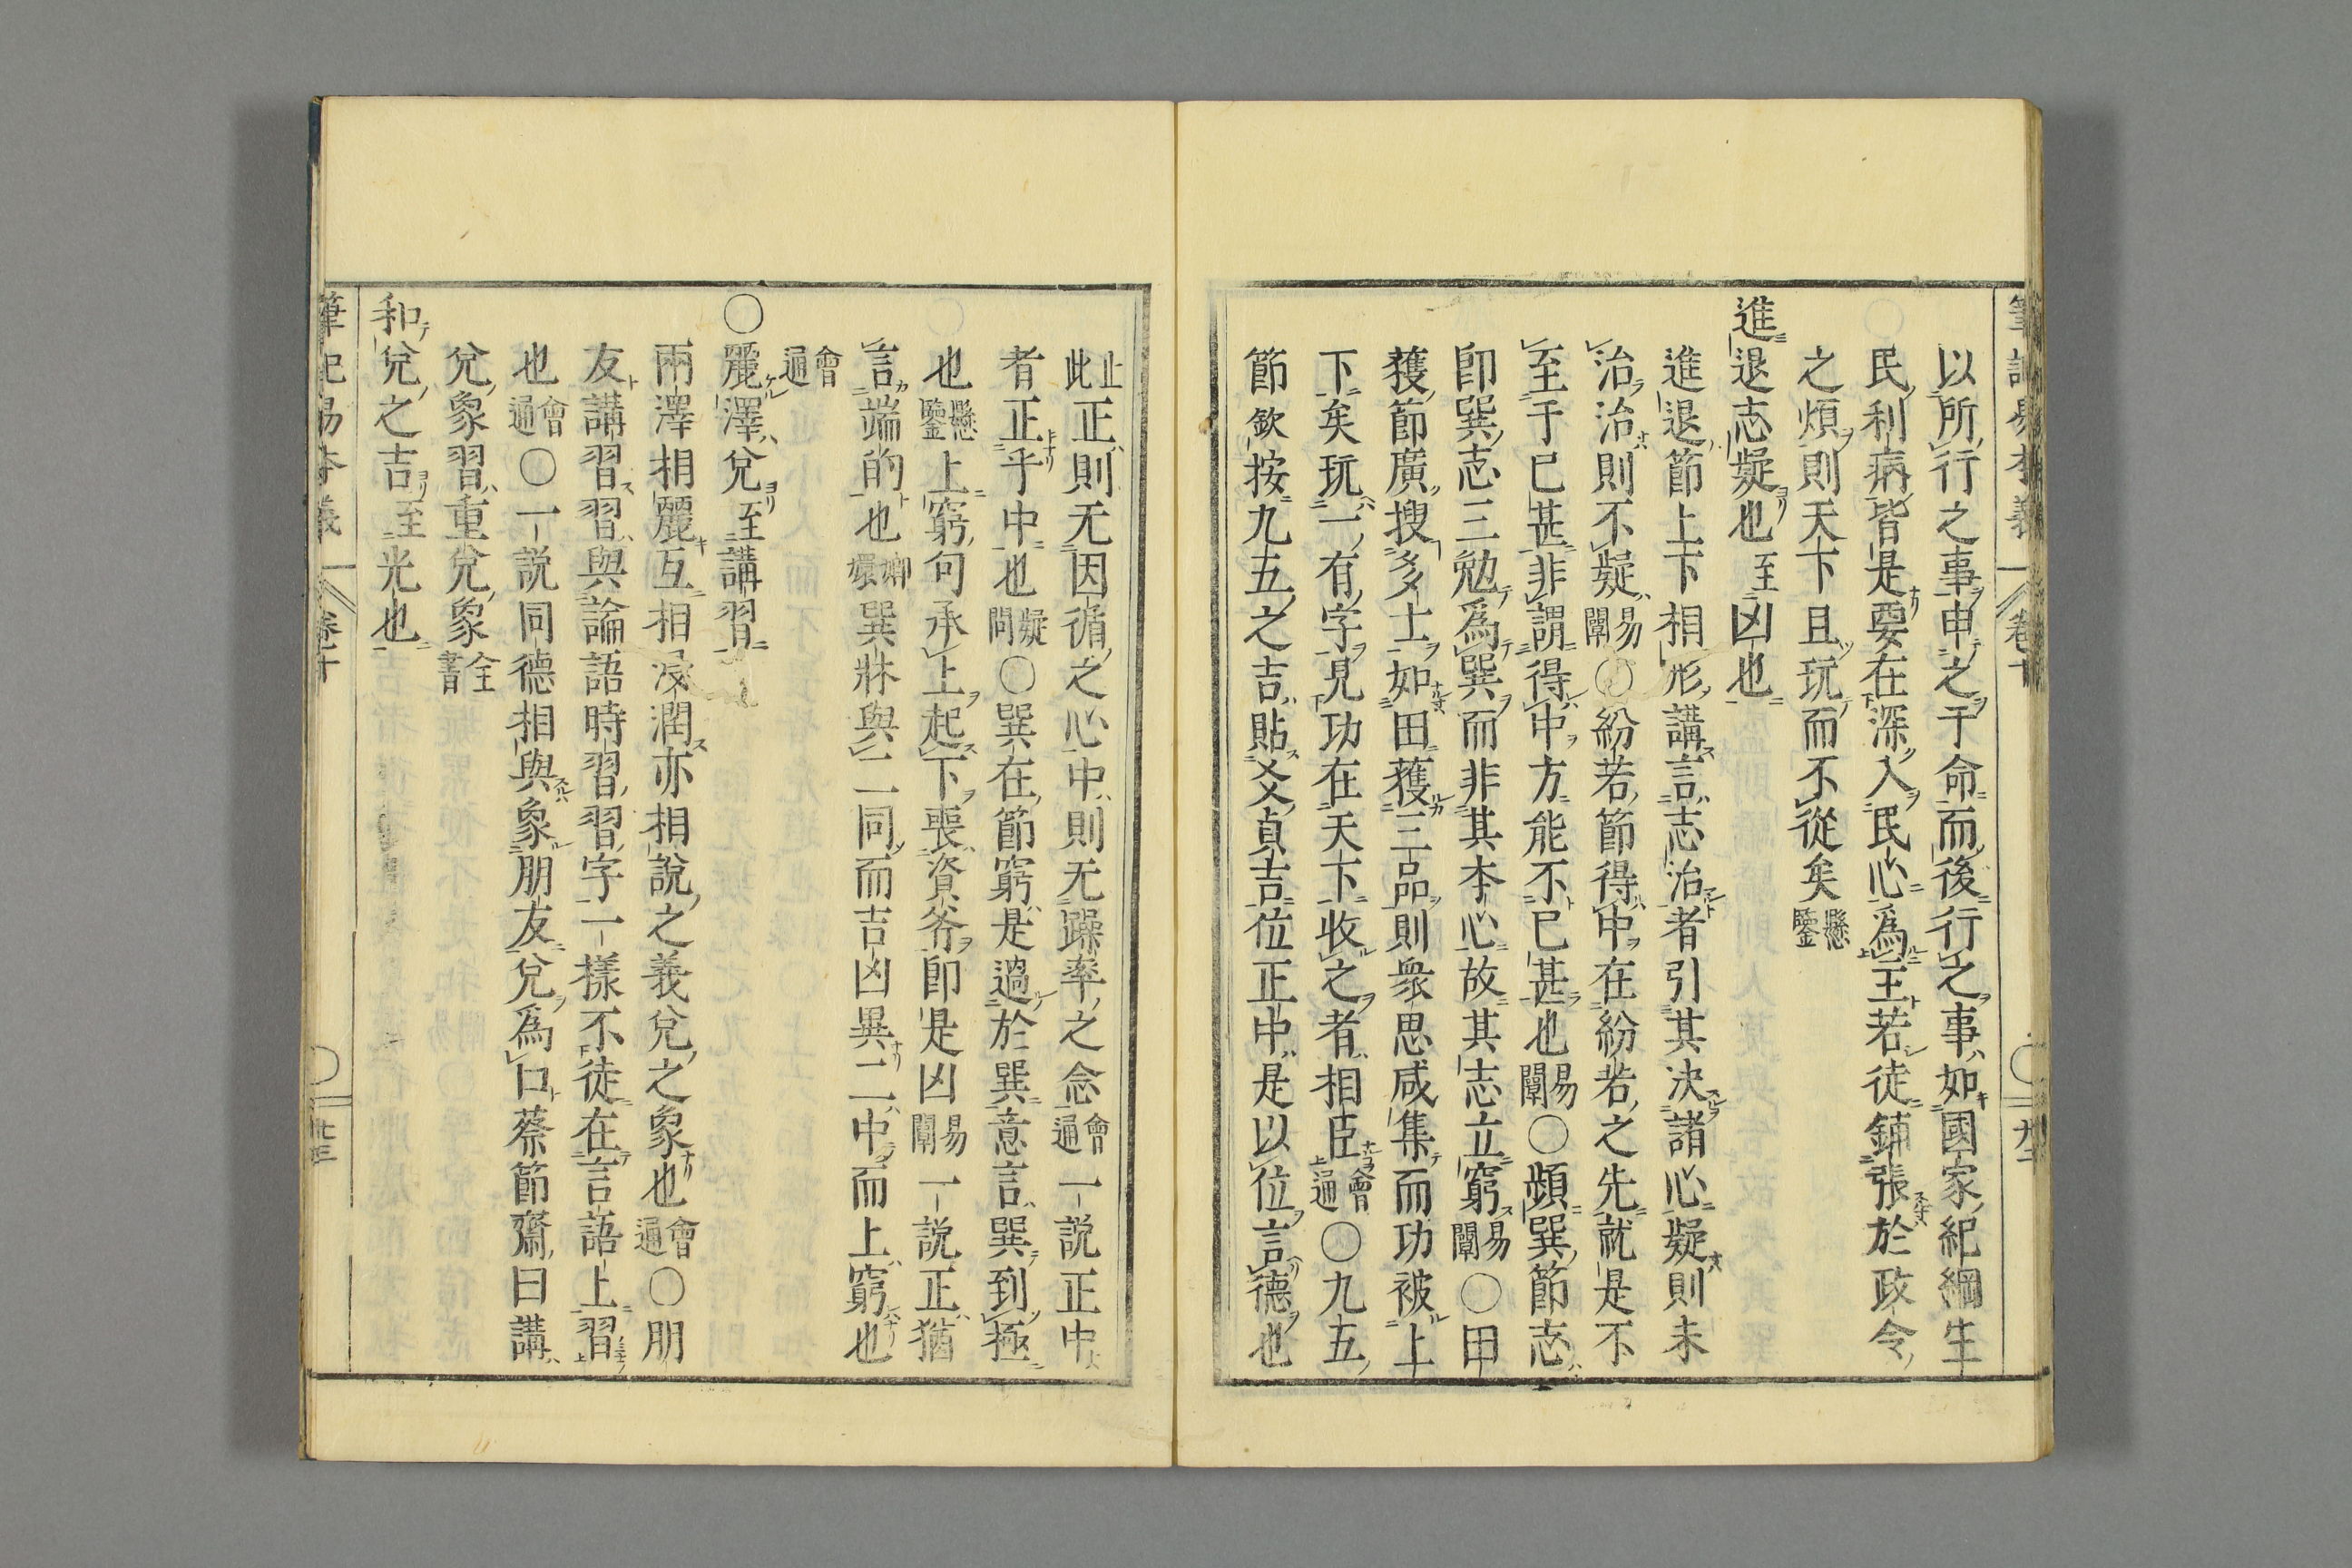 以所行之事申之于命而後行之事如國家紀綱生
民利病皆是要在深入民心爲主若徒鋪張於政令
之煩則天下且玩而不從矣懸鑒
進退志疑也至凶也
進退節上下相形講言志治者引其决諸心疑則未
治治則不疑易闡〇紛若節得中在紛若之先就是不
至于已甚非謂得中方能不已甚也易闡〇頻巽節志
卽巽志三勉爲巽而非其本心故其志立窮易闡〇田
獲節廣搜多士如田獲三品則衆思咸集而功被上
下矣玩一有字見功在天下收之者相臣會通〇九五
節欽按九五之吉貼爻貞吉位正中是以位言德也
止此正則无因循之心中則无躁率之念會通一說正中
者正乎中也疑問〇巽在節窮是過於巽意言巽到極
也懸鑒上窮句承上起下喪資斧卽是凶易闡一說正猶
言端的也嫏嬛巽牀與二同而吉凶異二中而上窮也
會通
〇麗澤兌至講習
兩澤相麗互相浸潤亦相說之義兌之象也會通〇朋
友講習習與論語時習習字一樣不徒在言語上習
也會通〇一說同德相與象朋友兌爲口蔡節齋曰講
兌象習重兌象全書
和兌之吉至光也